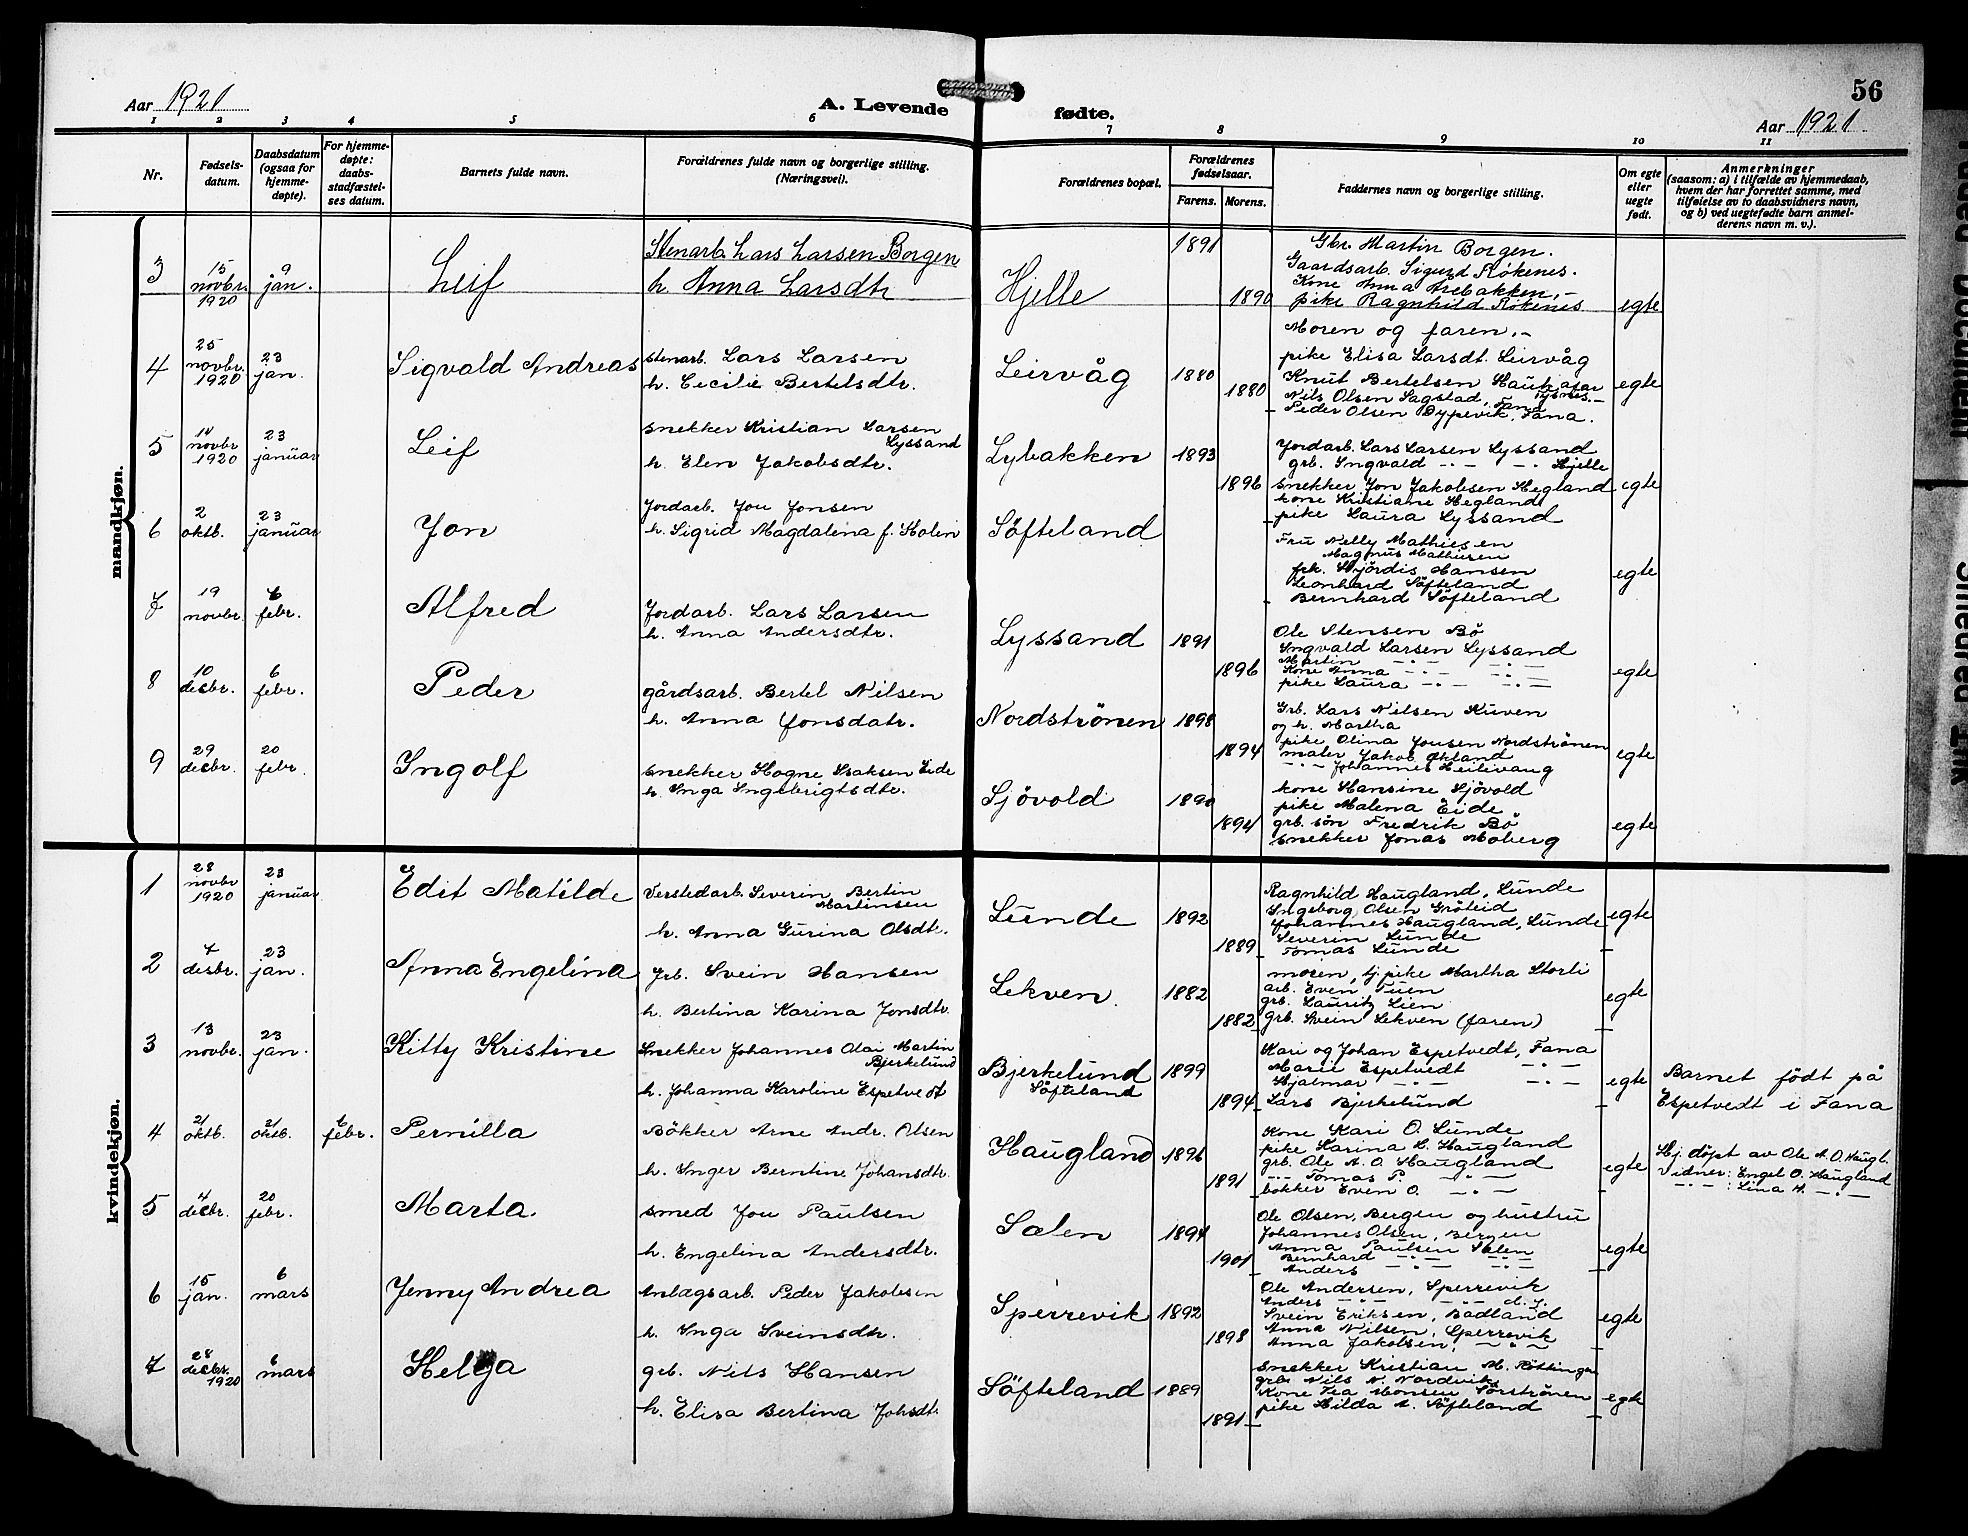 56
Aar 1921
A. Levende fødte.
Aar 1921
1 2 3 4 5 6 7 8 9 10 11
Nr.
Fødsels-
datum.
Daabsdatum
(ogsaa for
hjemme-
døpte).
For hjemme-
døpte:
daabs-
stadfæstel-
ses datum.
Barnets fulde navn.
Forældrenes fulde navn og borgerlige stilling.
(Næringsvei).
Forældrenes bopæl.
Forældrenes
fødselsaar.
Farens. Morens.
Faddernes navn og borgerlige stilling.
Om egte
eller
uegte
født.
Anmerkninger
(saasom: a) i tilfælde av hjemmedaab,
hvem der har forrettet samme, med
tilføielse av to daabsvidners navn,
og b) ved uegtefødte barn anmel-
derens navn m. v.).
mandkjøn.
3
15
novbr.
1920
9
jan.
Leif
Stenarb. Lars Larsen Borgen
h. Anna Larsdtr
Hjelle
1891
1890
Gbr. Martin Borgen.
Gaardsarb. Sigurd Røkenes.
Kone Anna Arebakken,-
pike Ragnhild Røkenes
egte
4
25
novbr.
1920
23
jan.
Sigvald Andreas
stenarb. Lars Larsen
h. Cecilie Bertelsdtr.
Leirvåg
1880
1880
Moren og faren,-
pike Elisa Larsdt. Leirvåg
Knut Bertelsen
Tysnes.-
Nils Olsen Sagstad, Fana
Peder Olsen Dypevik, Fana.
egte
5
novbr
1920
23
januar
Leif
snekker Kristian Larsen
Lyssand
h. Elen Jakobsdtr.
Lybakken
1893
1896
Jordarb. Lars Larsen Lyssand
grb. Ingvald -"- -"- Hjelle
snekker Jon Jakobsen Hegland
kone Kristiane Hegland
pike Laura Lyssand
egte
6
2
oktb.
23
januar
Jon
Jordarb. Jon Jonsen
h. Sigrid Magdalena f. Holen
Söfteland
Fru Nelly Mathiesen
Magnus Mathiesen
frk. Hjördis Hansen
Leonhard Söfteland
Bernhard Söfteland
egte
7
19
novbr.
6
febr.
Alfred
Jordarb. Lars Larsen
h. Anna Andersdtr.
Lyssand
1891
1896
Ole Stensen Bö
Ingvald Larsen Lyssand
Martin -"- -"-
Kone Anna -"- -"-
pike Laura -"- -"-
egte
8
10
desbr.
6
febr.
Peder
gårdsarb. Bertel Nilsen
h. Anna Jonsdatr.
Nordströnen
1898
1894
Grb. Lars Nilsen Kuven
og h. Martha
pike Olina Jonsen Nordströnen
maler Jakob Økland
-"- Johannes
egte
9
29
desbr.
20
febr.
Ingolf
snekker Hogne Isaksen Eide
h. Inga Ingebrigtsdtr.
Sjövold
1890
1894
kone Hansine Sjövold
pike Malena Eide
grb. sön Fredrik Bö
snekker Jonas Moberg
egte
kvindekjøn.
1
28
novbr
1920
23
januar
Edit Matilde
Verstedarb. Severin Bertin
Martinsen
h. Anna Gurina Olsdtr.
Lunde
1892
1889
Ragnhild Haugland, Lunde
Ingeborg Olsen Gröleid
Johannes Haugland, Lunde
Severin Lunde
Tomas Lunde
egte
2
7
desbr.
23
jan.
Anna Engelina
grb. Svein Hansen
h. Bertina Karina Jonsdtr.
Lekven.
1882
1882
moren, tj. pike Martha Storli
arb. Even Tuen
grb. Lauritz Lien
grb. Svein Lekven (faren)
egte
3
13
novbr.
23
jan.
Kitty Kristine
Snekker Johannes Olai Martin
Bjerkelund
h. Johanna Karoline Espetvedt
Bjerkelund
Söfteland
1899
1894
Kari og Johan Espetvedt, Fana
Marie Espetvedt -"-
Hjalmar -"- -"-
Lars Bjerkelund
egte
Barnet födt på
Espetvedt i Fana
4
21
oktb.
21
oktb.
6
febr.
Pernilla
Bökker Arne Andr. Olsen
h. Inger Berntine Johansdtr.
Haugland
1896
1891
Kone Kari O. Lunde
pike Karina H. Haugland
grb. Ole A. O. Haugland
-"- Tomas P. -"-
bökker Even O. -"-
egte
Hj. döpt av Ole A. O. Haugl.
Vidner: Engel O. Haugland
-"- : Lina H. -"-
5
4
desbr.
20
febr.
Marta.
smed Jon Paulsen
h. Engelina Andersdtr.
Sælen
1894
1901
Ole Olsen, Bergen og hustru
Johannes Olsen, Bergen
Anna Paulsen Sælen
Bernhard -"- -"-
Anders -"- -"-
egte
6
15
jan.
6
mars
Jenny Andrea
Anlægsarb. Peder Jakobsen
h. Inga Sveinsdtr.
Sperrevik
1892
1898
Ole Andersen, Sperrevik
Anders -"- -"- d. y.
Svein Eriksen, Bådland
Anna Nilsen, Sperrevik
Anna Jakobsen, -"-
egte
7
28
desbr.
1920
6
mars
Helga
grb. Nils Hansen
h. Elisa Bertina Johsdtr.
Söfteland
1889
1891
snekker Kristian M. Röttingen
grb. Nils N. Nordvik
Kone Lea Monsen Sörströnen
pike Hilda A. Söfteland
egte